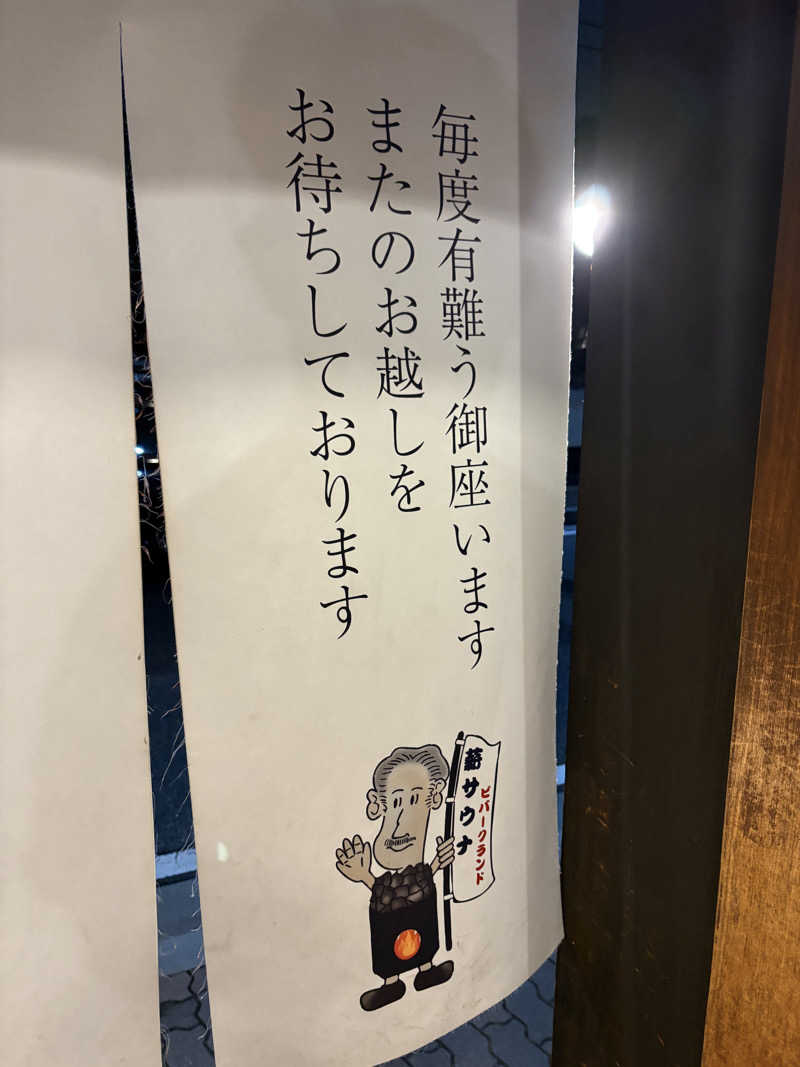 毎度有難う御座います
またのお越しを
お待ちしております
薪サウナ
ビバークランド